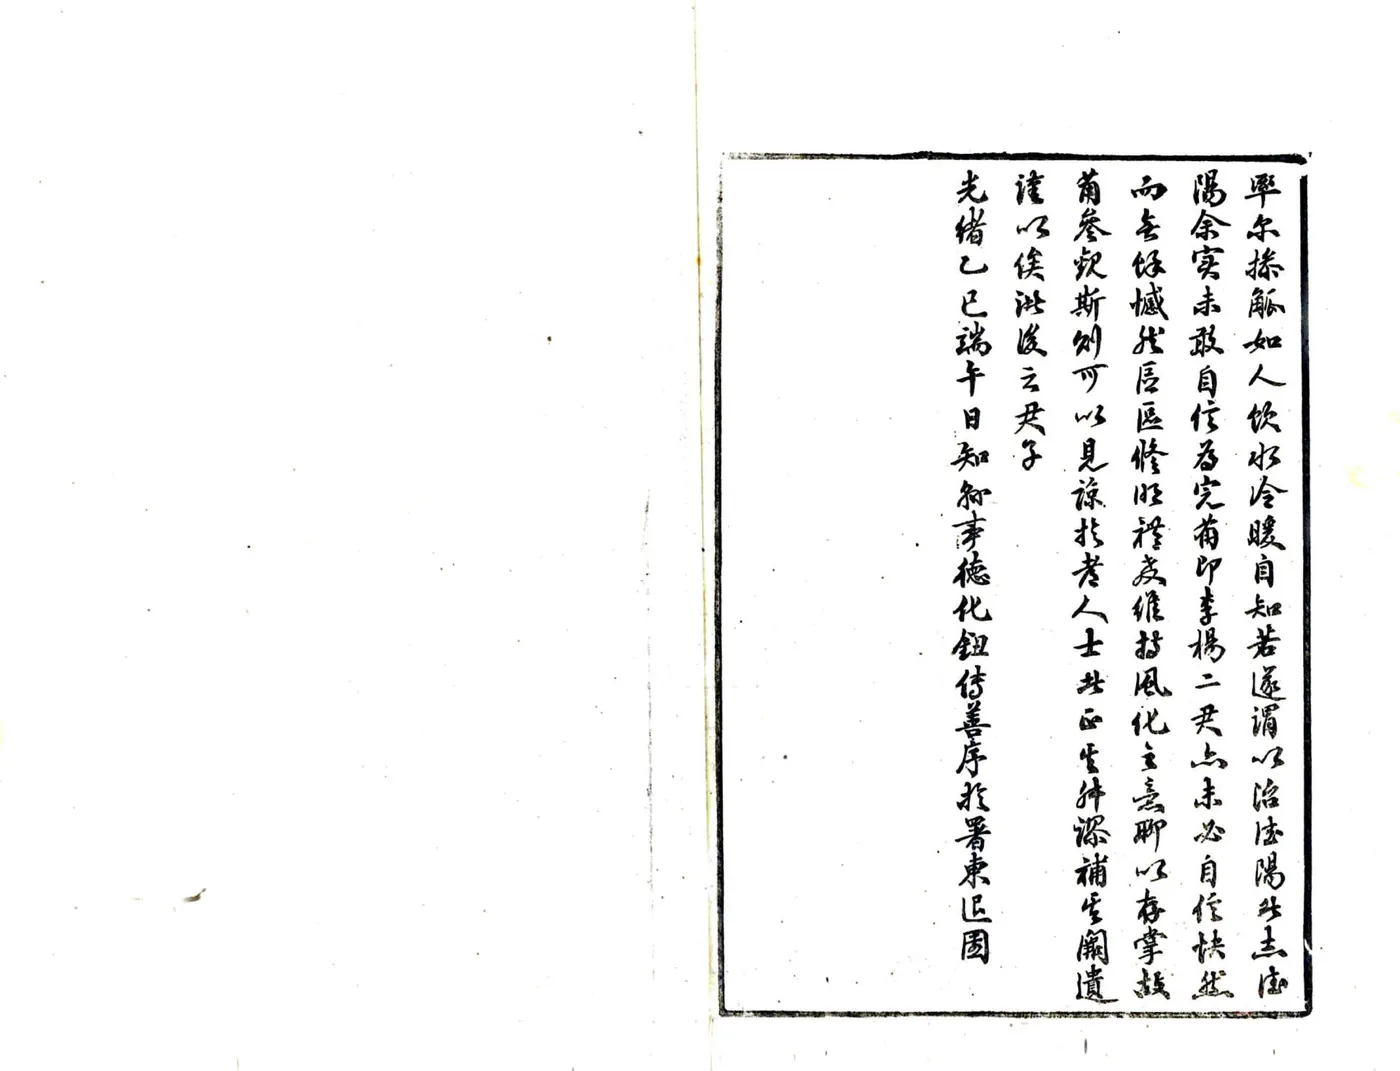 率尔操觚如人飲水冷暖自知若遂謂以治德陽此志德
陽余实未敢自信為完備即李楊二君亦未必自信快然
而無餘憾然區區修明禮教維持風化主意聊以存掌故
備參觀斯則可以見諒於都人士此正其舛謬補其闕遺
謹以俟諸後之君子
光緒乙巳端午日知縣事德化鈕傳善序於署東退園